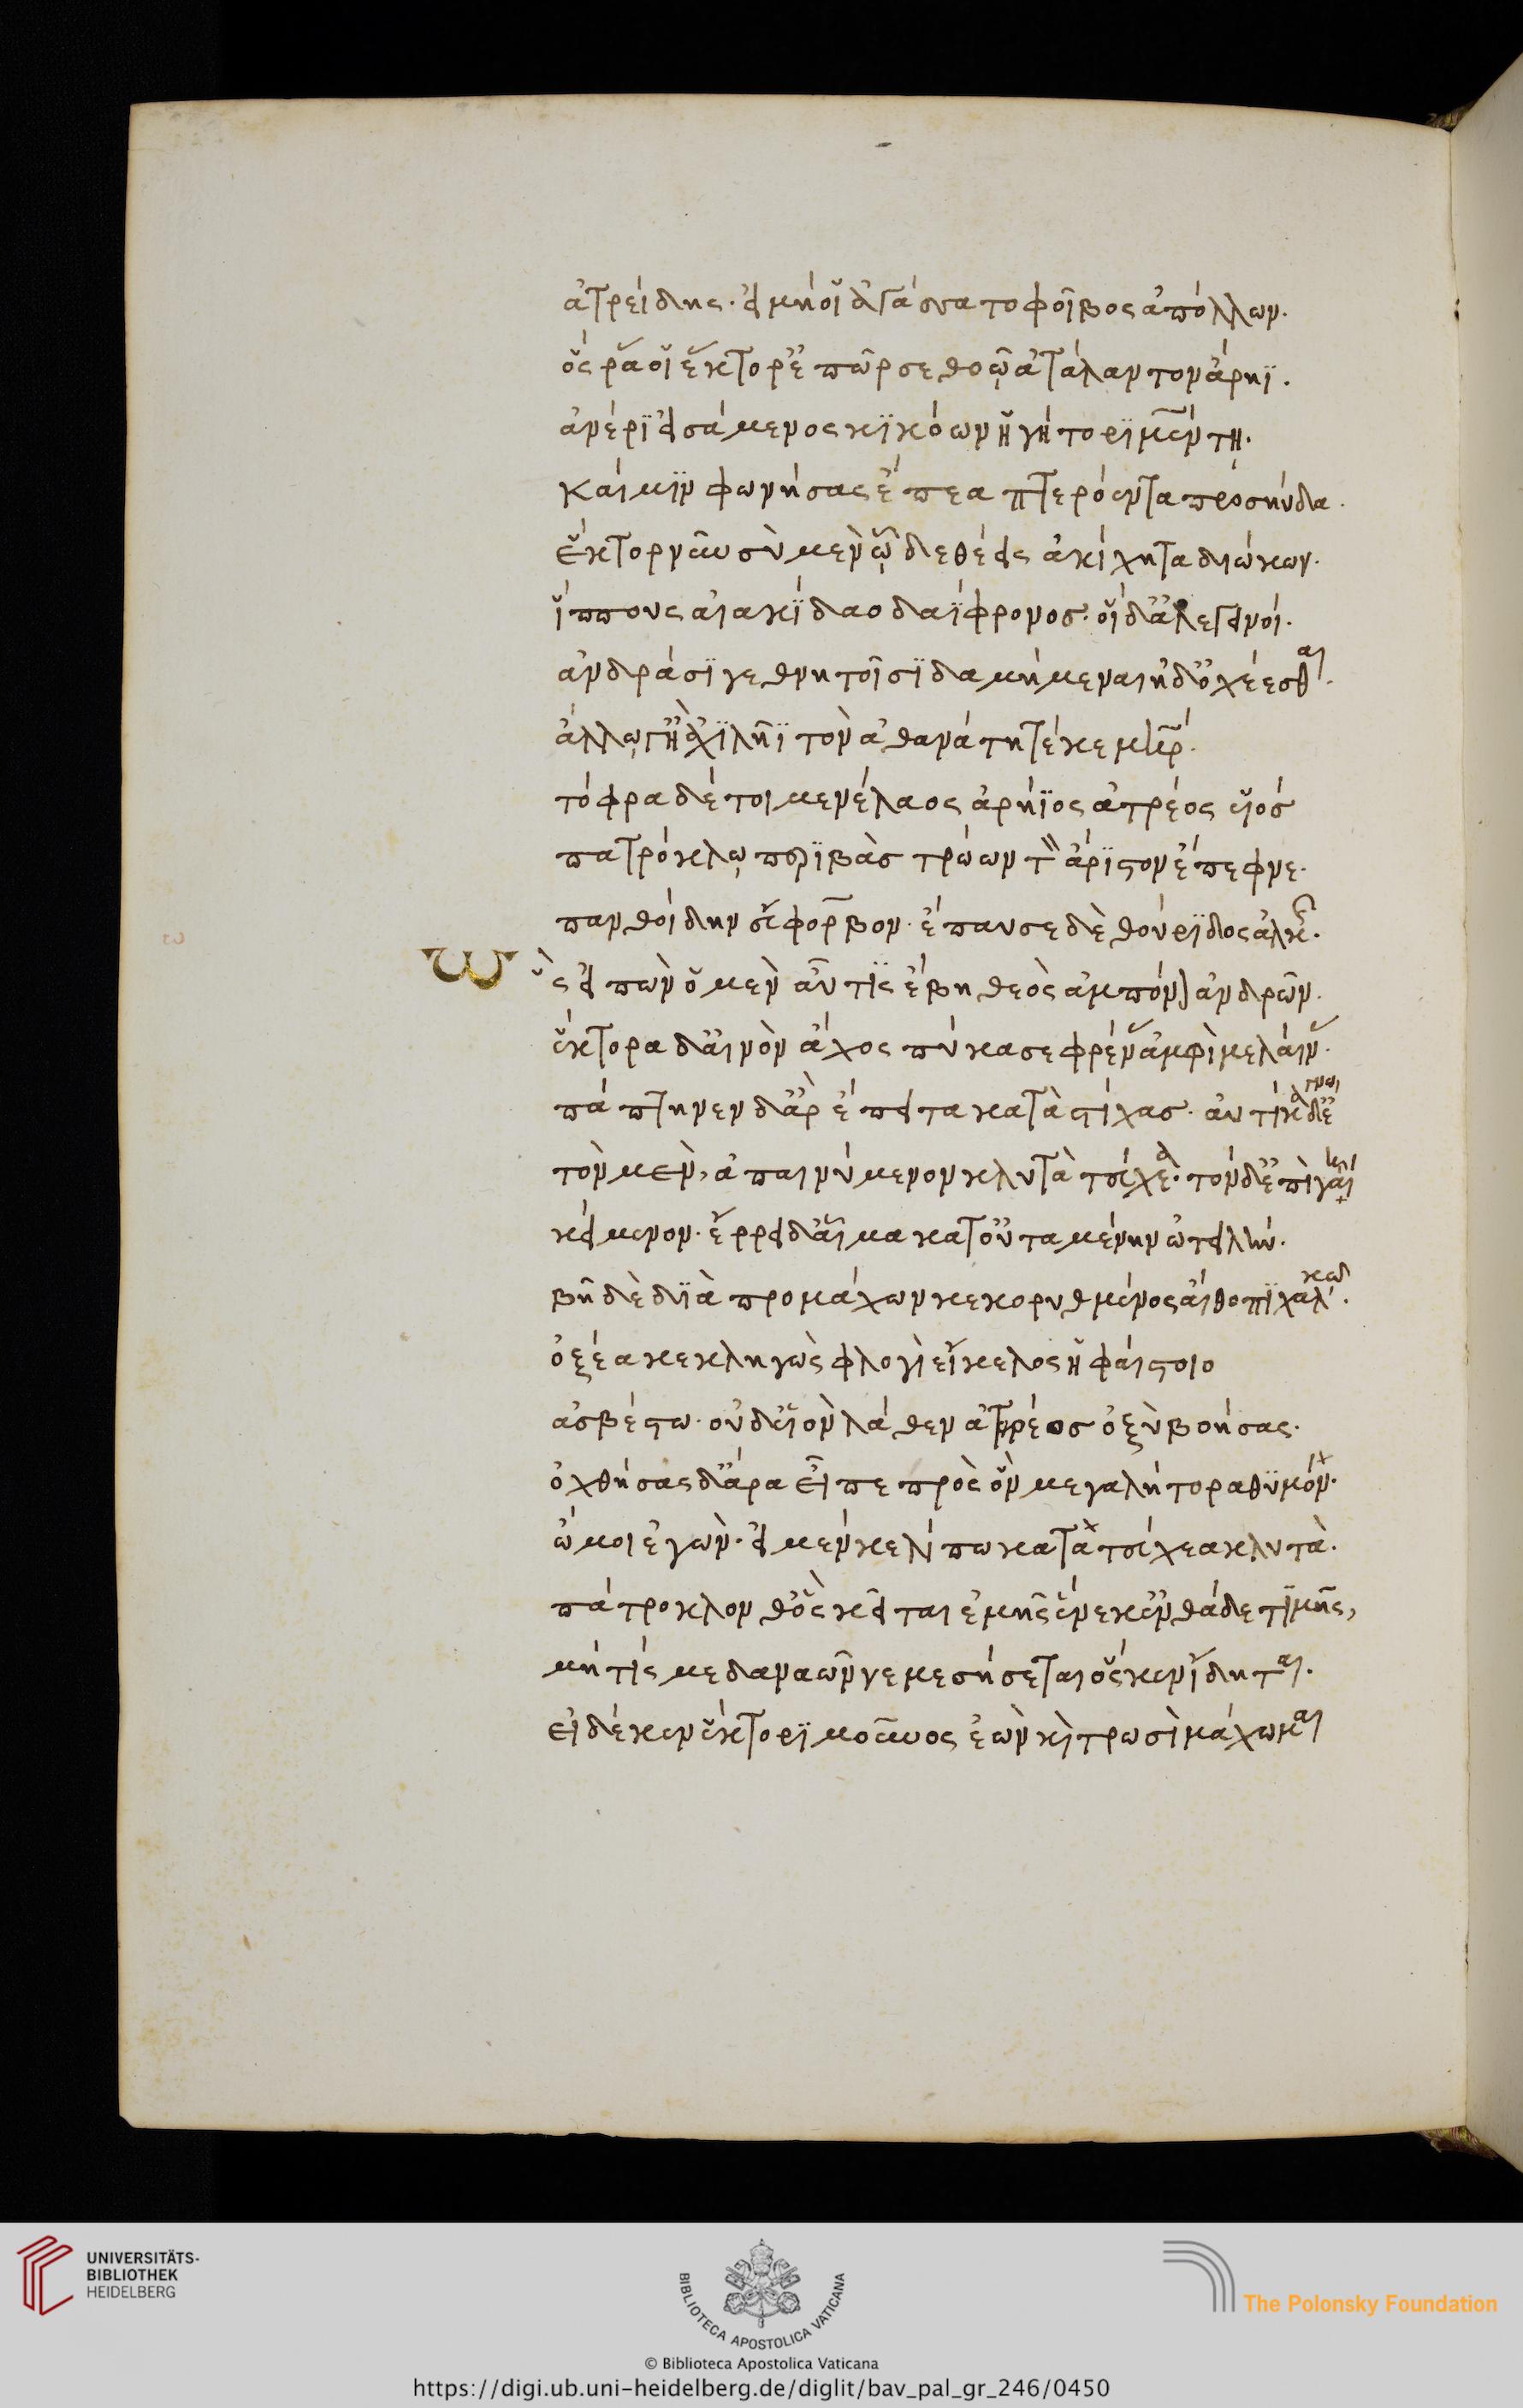 ἀτρείδης· εἰ μή οἱ ἀγάσσατο φοῖβος ἀπόλλων·
ὅς ῥά οἱ ἕκτορ' ἐπῶρσε θοῷ ἀτάλαντον ἄρηϊ.
ἀνέρι εἰσάμενος κικόων ἡγήτορι μέντῃ.
καί μιν φωνήσας ἔπεα πτερόεντα προσηύδα.
ἕκτορ νῦν σὺ μὲν ὧδε θέεις ἀκίχητα διώκων·
ἵππους αἰακίδαο δαΐφρονος· οἱ δ' ἀλεγεινοί.
ἀνδράσι γε θνητοῖσι δαμήμεναι ἠδ' ὀχέεσθαι.
ἄλλῳ γ' ἢ ἀχιλῆϊ τὸν ἀθανάτη τέκε μήτηρ.
τόφρα δέ τοι μενέλαος ἀρήϊος ἀτρέος υἱός
πατρόκλῳ περιβὰς τρώων τὸν ἄριστον ἔπεφνε.
πανθοίδην εὔφορβον· ἔπαυσε δὲ θούριδος ἀλκῆς.
ὣς εἰπὼν ὁ μὲν αὖτις ἔβη θεὸς ἂμ πόνον ἀνδρῶν.
ἕκτορα δ' αἰνὸν ἄχος πύκασε φρένας ἀμφὶ μελαίνας.
πάπτηνεν δ' ἂρ ἔπειτα κατὰ στίχας· αὐτίκα δ' ἔγνω
τὸν μὲν, ἀπαινύμενον κλυτὰ τεύχεα· τὸν δ' ἐπὶ γαίῃ
κείμενον· ἔρρει δ' αἷμα κατ' οὐταμένην ὠτειλήν.
βῆ δὲ διὰ προμάχων κεκορυθμένος αἴθοπι χαλκῷ.
ὀξέα κεκληγὼς φλογὶ εἴκελος ἡφαίστοιο
ἀσβέστω· οὐδ' υἱὸν λάθεν ἀτρέος ὀξὺ βοήσας.
ὀχθήσας δ' ἄρα εἶπε πρὸς ὃν μεγαλήτορα θυμόν·
ὤμοι ἐγών· εἰ μέν κε λίπω κατὰ τεύχεα κλυτὰ.
πάτροκλον θ' ὃς κεῖται ἐμῆς ἕνεκ' ἐνθάδε τιμῆς,
μή τίς με δαναῶν νεμεσήσεται ὅς κεν ἴδηται.
εἰ δέ κεν ἕκτορι μοῦνος ἐὼν καὶ τρωσὶ μάχωμαι
UNIVERSITÄTS-
BIBLIOTHEK
HEIDELBERG
BIBLIOTECA APOSTOLICA VATICANA
The Polonsky Foundation
© Biblioteca Apostolica Vaticana
https://digi.ub.uni-heidelberg.de/diglit/bav_pal_gr_246/0450